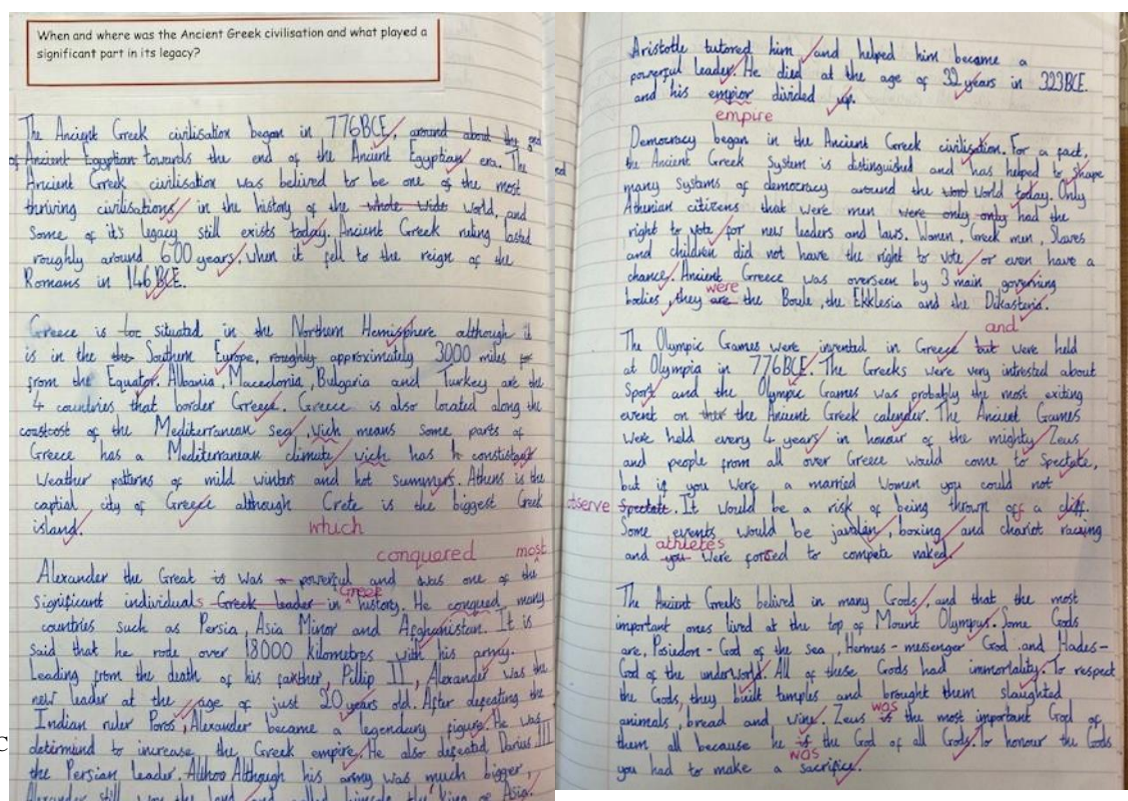 When and where was the Ancient Greek civilisation and what played a
significant part in its legacy?
The Ancient Greek civilisation began in 776BCE, around about the end
of Ancient Egyptian towards the end of the Ancient Egyptian era. The
Ancient Greek civilisation was belived to be one of the most
thriving civilisations in the history of the whole wide world, and
some of it's legacy still exists today. Ancient Greek ruling lasted
roughly around 600 years, when it fell to the reign of the
Romans in 146 BCE.
Greece is loc situated in the Northern Hemisphere although it
is in the the Southern Europe, roughly approximately 3000 miles
from the Equator. Albania, Macedonia, Bulgaria and Turkey are the
4 countries that border Greece. Greece is also located along the
coastcost of the Mediterranean sea, wich means some parts of
Greece has a Mediterranean climate wich has constistant
weather patterns of mild winters and hot summers. Athens is the
captial city of Greece although Crete is the biggest Greek
island.
which
conquared most
Alexander the Great is was a powerful and was one of the
significant individuals Greek leader in Greek history. He conqued many
countries such as Persia, Asia Minor and Afghanistan. It is
said that he rode over 18000 kilometres with his army.
Leading from the death of his farther, Pillip II, Alexander was the
new leader at the age of just 20 years old. After defeating the
Indian ruler Poros, Alexander became a legendary figure. He was
determind to increase the Greek empire. He also defeatd, Darius III
the Persian leader. Althoo Although his army was much bigger,
Alexander still won the land and called himself the king of Asia.
Aristotle tutored him and helped him became a
powerful leader. He died at the age of 32 years in 323BCE.
and his empior divided up.
empire
Democracy began in the Ancient Greek civilistion. For a fact,
the Ancient Greek system is distinguished and has helped to shape
many systams of democracy around the world today. Only
Athenian citizens that were men were only only had the
right to vote for new leaders and laws. Women, Greek men, Slaves
and children did not have the right to vote or even have a
chance. Ancient Greece was overseen by 3 main governing
bodies, they are were the Boule, the Ekklesia and the Dikasteria.
and
The Olympic Games were invented in Greece but were held
at Olympia in 776BCE. The Greeks were very intrested about
Sport and the Olympic Games was probably the most exiting
event on the Ancient Greek calender. The Ancient Games
were held every 4 years in honour of the mighty Zeus
and people from all over Greece would come to Spectate,
but if you were a married Women you could not
observe Spectate. It would be a risk of being thrown off a cliff.
Some events would be javalin, boxing and chariot racing
and you athletes were forced to compete naked.
The Ancient Greeks belived in many Gods, and that the most
important ones lived at the top of Mount Olympus. Some Gods
are, Posiedon - God of the sea, Hermes - messenger God and Hades -
God of the underworld. All of these Gods had immortality. To respect
the Gods, they built tamples and brought them slaughted
animals, bread and wine. Zeus is was the most important God of
them all because he is was the God of all Gods. To honour the Gods
you had to make a sacrifice.